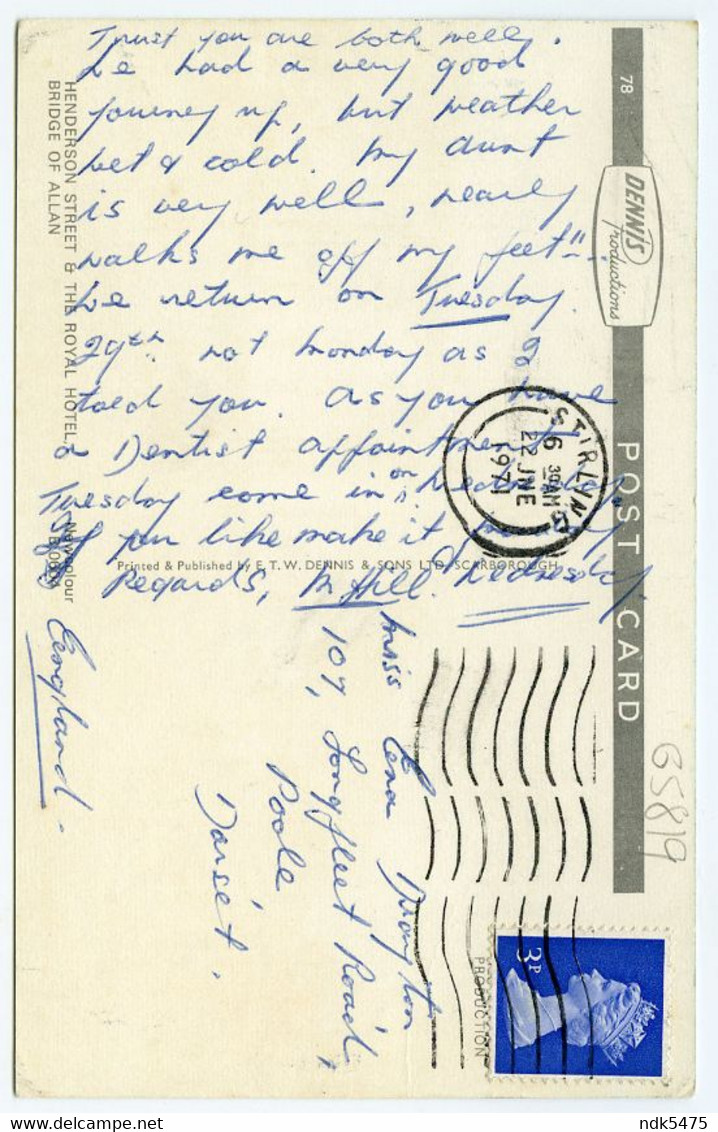 Trust you are both well.
We had a very good
journey up, but weather
wet & cold. My aunt
is very well, nearly
walks me off my feet!!
We return on Tuesday
29th not Monday as I
told you. As you have
a Dentist appointment
Tuesday come in on Wednesday
If you like make it
Wednesday.
Regards, M. Hill.
Miss Ena Drayton
107, Longfleet Road,
Poole
Dorset.
England.
HENDERSON STREET & THE ROYAL HOTEL,
BRIDGE OF ALLAN
Printed & Published by E. T. W. DENNIS & SONS LTD, SCARBOROUGH
78
DENNIS
productions
POST CARD
STIRLING
6 30AM
22 JNE
1971
G5819
3P
PRODUCTION
ndk5475